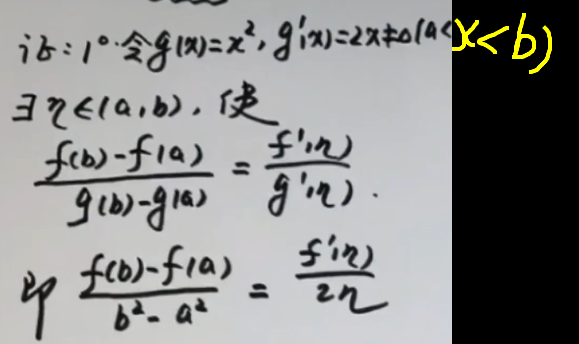 证:1°.令g(x)=x²,g'(x)=2x≠0(a<x<b)
∃η∈(a,b),使
(f(b)-f(a))/(g(b)-g(a)) = f'(η)/g'(η).
即 (f(b)-f(a))/(b²-a²) = f'(η)/2η